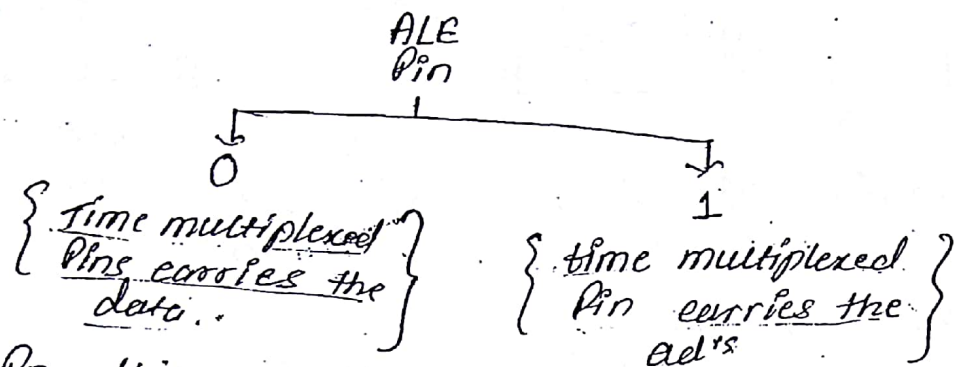 ALE
Pin
0
1
{ Time multiplexed
Pins carries the
data.. }
{ time multiplexed
Pin carries the
ad's }